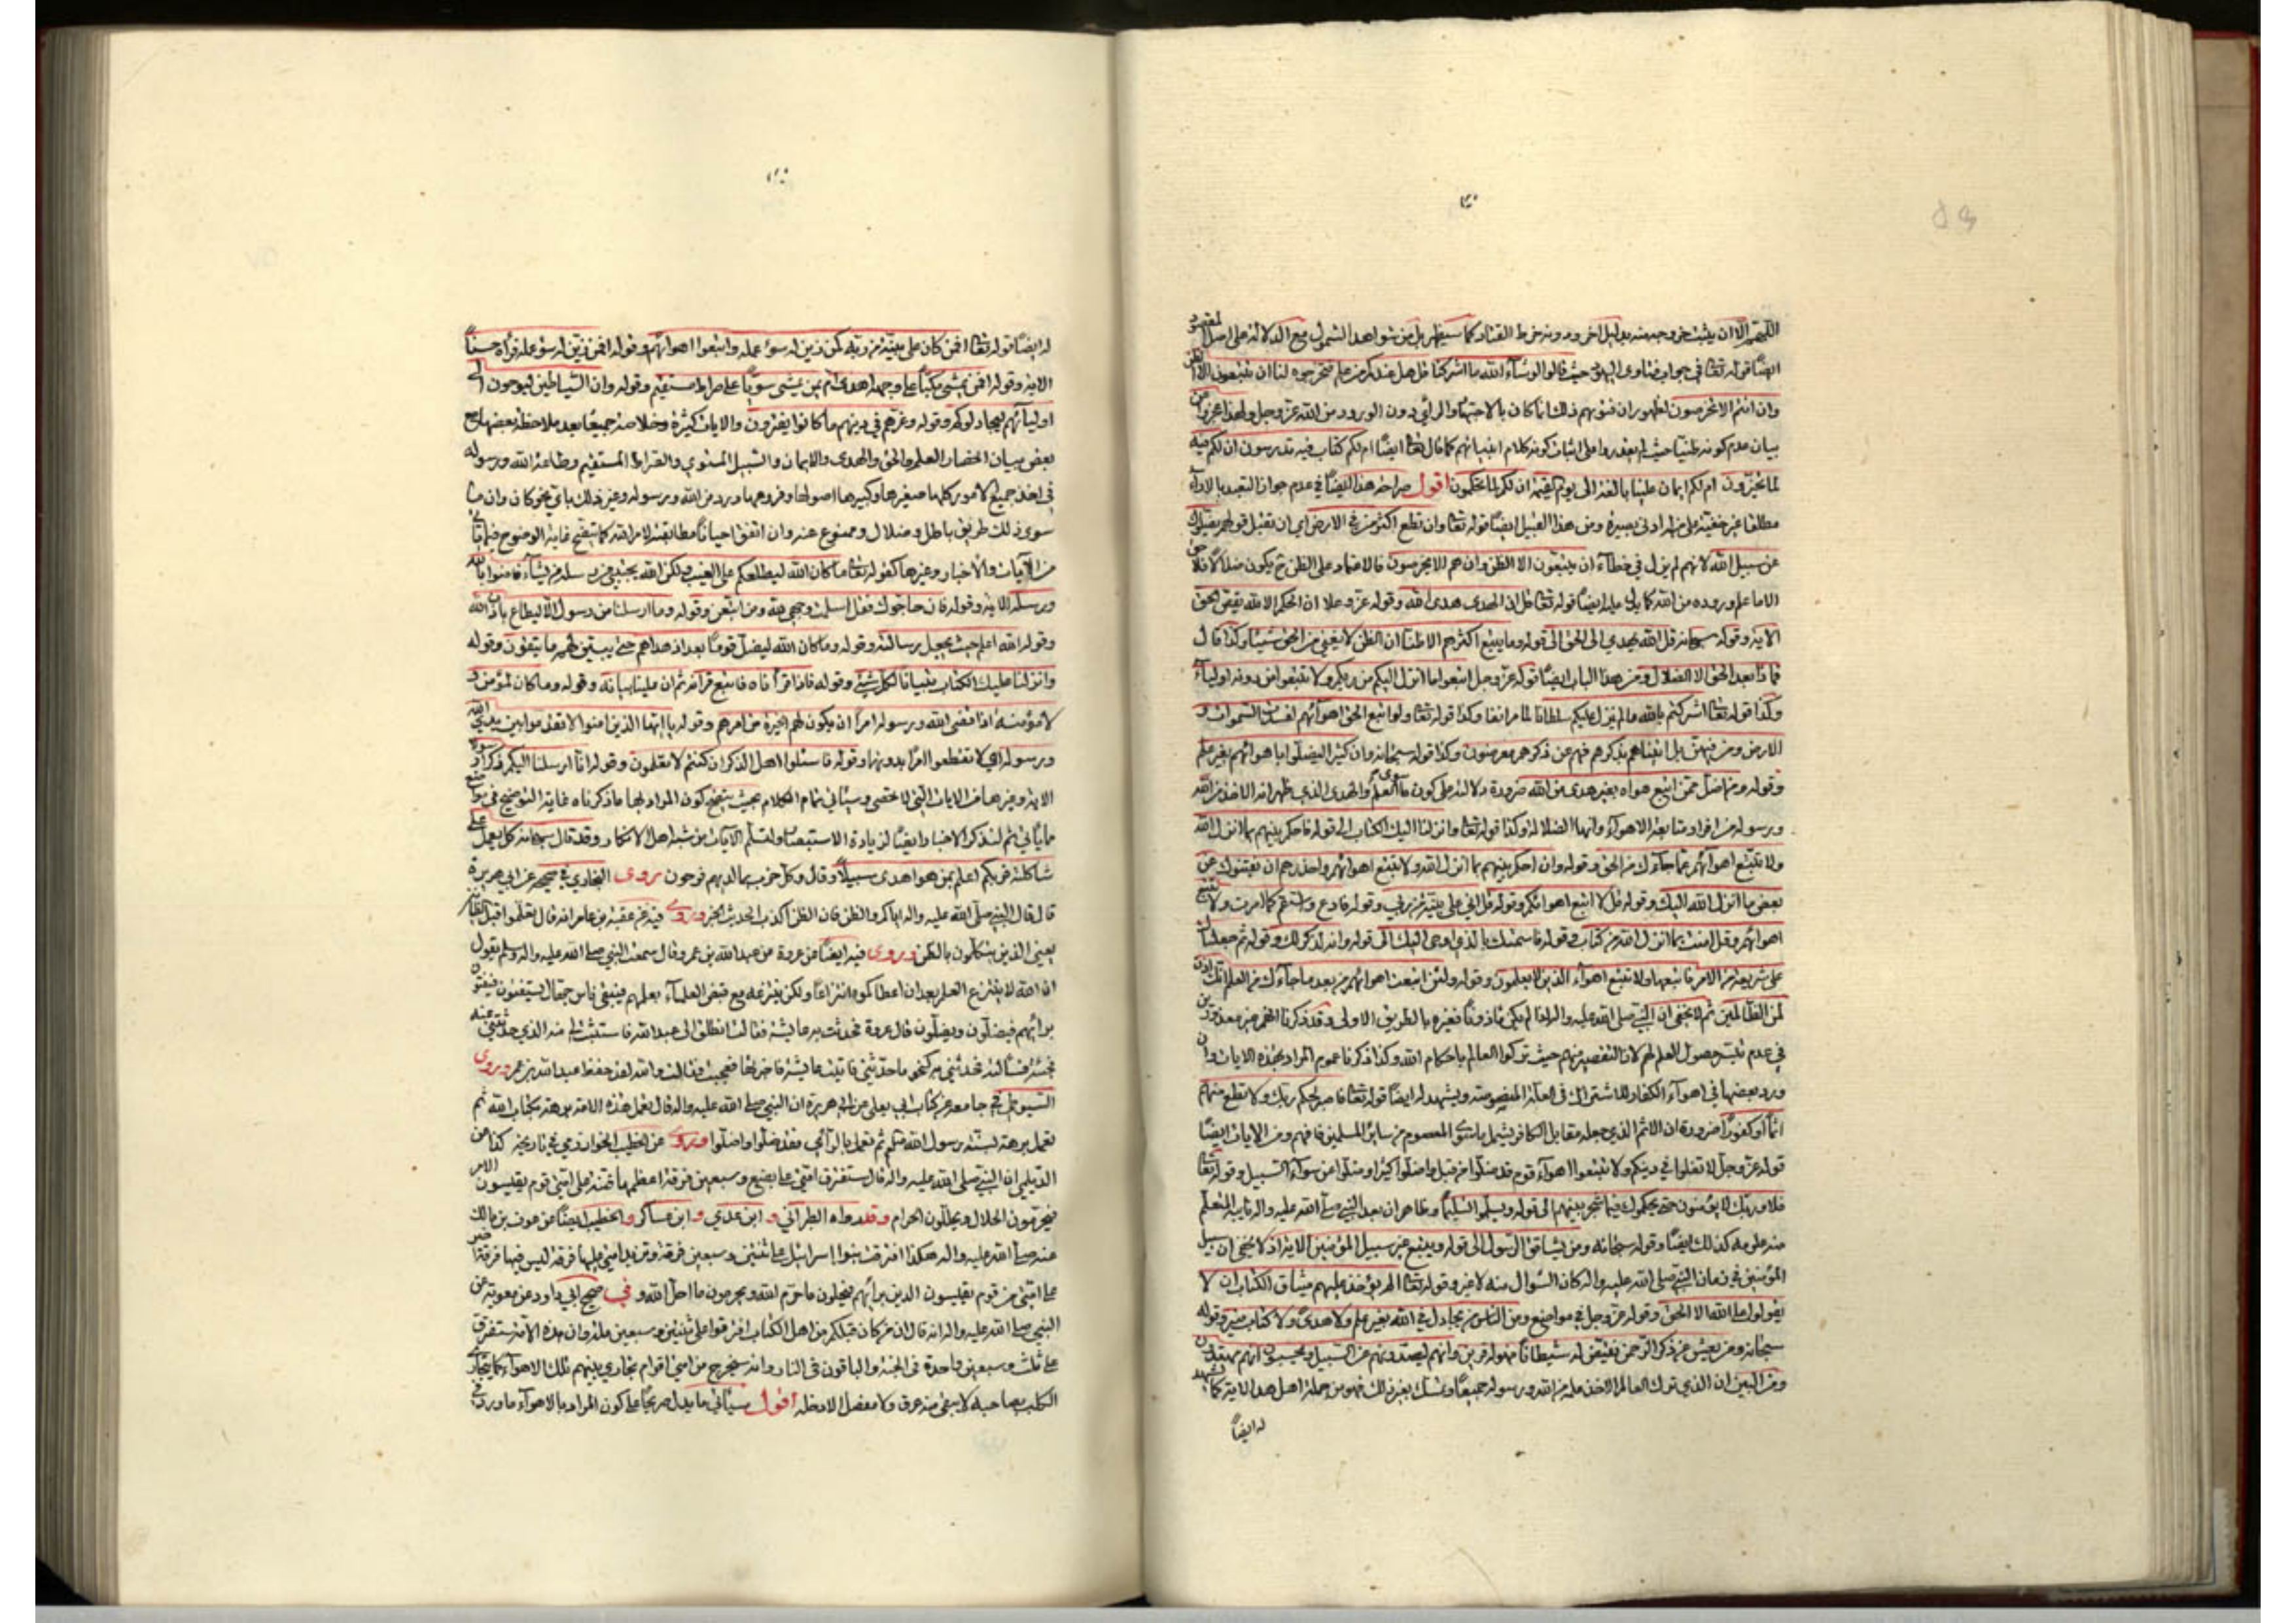 اللهم الا ان يثبت خروجه منه بدليل اخر ودونه خرط القتاد كما سيظهر بل من شواهد الشمول مع الدلالة على اصل المقصود
ايضا قوله تعا في جواب فتاوى اليهود حيث قالوا لو شآء الله ما اشركنا قل هل عندكم من علم فتخرجوه لنا ان تتبعون الا الظن
وان انتم الا تخرصون لظهور ان فتويهم ذلك انما كان بالاجتهاد والرأي دون الورود من الله عز وجل ولهذا عجزوا عن
بيان عدم كونه ظنيا حيث لم يقدروا على اثبات كونه كلام انبيائهم كما قال تعا ايضا ام لكم كتاب فيه تدرسون ان لكم فيه
لما تخيرون ام لكم ايمان علينا بالغة الى يوم القيمة ان لكم لما تحكمون اقول صراحة هذا ايضا في عدم جواز التعبد بالاراء
مطلقا غير خفية على من له ادنى بصيرة ومن هذا القبيل ايضا قوله تعا وان تطع اكثر من في الارض اي ان تقبل قولهم يضلوك
عن سبيل الله لانهم لم يزل في خطاء ان يتبعون الا الظن وان هم الا يخرصون فالاعتماد على الظن ح يكون ضلالا فلا حق
الا ما علم وروده من الله كما يدل عليه ايضا قوله تعا قل ان الهدى هدى الله وقوله عز وعلا ان الحكم الا لله يقص الحق
الاية وقوله سبحانه قل الله يهدي الى الحق الى قوله وما يتبع اكثرهم الا ظنا ان الظن لا يغني من الحق شيئا وكذا قال
فماذا بعد الحق الا الضلال ومن هذا الباب ايضا قوله عز وجل اتبعوا ما انزل اليكم من ربكم ولا تتبعوا من دونه اوليآء
وكذا قوله تعا اشركتم بالله ما لم ينزل عليكم سلطانا لما مر انفا وكذا قوله تعا ولو اتبع الحق اهوآئهم لفسدت السموات و
الارض ومن فيهن بل اتيناهم بذكرهم فهم عن ذكرهم معرضون وكذا قوله سبحانه وان كثيرا ليضلون باهوائهم بغير علم
وقوله ومن اضل ممن اتبع هواه بغير هدى من الله ضرورة دلالته على كون ما سوى العلم والهدى الذي ظهر انه الاخذ من الله
ورسوله من افراد متابعة الاهوآء وانها الضلالة وكذا قوله تعا وانزلنا اليك الكتاب الى قوله فاحكم بينهم بما انزل الله
ولا تتبع اهوآئهم عما جآءك من الحق وقوله وان احكم بينهم بما انزل الله ولا تتبع اهوائهم واحذرهم ان يفتنوك عن
بعض ما انزل الله اليك وقوله قل لا اتبع اهوائكم وقوله قل اني على بينة من ربي وقوله فادع واستقم كما امرت ولا تتبع
اهوائهم وقل امنت بما انزل الله من كتاب وقوله فاستمسك بالذي اوحي اليك الى قوله وانه لذكر لك وقوله ثم جعلناك
على شريعة من الامر فاتبعها ولا تتبع اهوآء الذين لا يعلمون وقوله ولئن اتبعت اهوائهم من بعد ما جآءك من العلم انك اذن
لمن الظالمين ثم لا يخفى ان النبي صلى الله عليه واله اذا لم يكن ماذونا فغيره بالطريق الاولى وقد ذكرنا انهم غير معذورين
في عدم تيسر حصول العلم لهم لان التقصير منهم حيث تركوا العالم باحكام الله وكذا ذكرنا عموم المراد بهذه الايات وان
ورد بعضها في اهوآء الكفار للاشتراك في العلة المنصوصة ويشهد له ايضا قوله تعا فاصبر لحكم ربك ولا تطع منهم
اثما او كفورا ضرورة ان الاثم الذي جعله مقابل الكافر يشمل ما سوى المعصوم من ساير المسلمين فافهم ومن الايات ايضا
قوله عز وجل لا تغلوا في دينكم ولا تتبعوا اهوآء قوم قد ضلوا من قبل واضلوا كثيرا وضلوا عن سوآء السبيل وقوله تعا
فلا وربك لا يؤمنون حتى يحكموك فيما شجر بينهم الى قوله ويسلموا تسليما وظاهر ان بعد النبي صلى الله عليه واله نايبه المتعلم
منه علومه كذلك ايضا وقوله سبحانه ومن يشاقق الرسول الى قوله ويتبع غير سبيل المؤمنين الاية اذ لا يخفى ان سبيل
المؤمنين في زمان النبي صلى الله عليه واله كان السؤال منه لا غير وقوله تعا الم يؤخذ عليهم ميثاق الكتاب ان لا
يقولوا على الله الا الحق وقوله عز وجل في مواضع ومن الناس من يجادل في الله بغير علم ولا هدى ولا كتاب منير وقوله
سبحانه ومن يعش عن ذكر الرحمن نقيض له شيطانا فهو له قرين وانهم ليصدونهم عن السبيل ويحسبون انهم مهتدون
ومن البين ان الذي ترك العالم الاخذ علمه من الله ورسوله جميعا وتمسك بغير ذلك فهو من جملة اهل هذه الاية كما يشهد
له ايضا
له ايضا قوله تعا افمن كان على بينة من ربه كمن زين له سوء عمله واتبعوا اهوائهم وقوله افمن زين له سوء عمله فرآه حسنا
الاية وقوله افمن يمشي مكبا على وجهه اهدى ام من يمشي سويا على صراط مستقيم وقوله وان الشياطين ليوحون الى
اوليآئهم ليجادلوكم وقوله وغرهم في دينهم ما كانوا يفترون والايات كثيرة وخلاصة جميعا بعد ملاحظة بعضها مع
بعض بيان انحصار العلم والحق والهدى والايمان والسبيل المستوي والصراط المستقيم وطاعة الله ورسوله
في اخذ جميع الامور كلها صغيرها وكبيرها اصولها وفروعها مما ورد من الله ورسوله وغير ذلك باي نحو كان وان ما
سوى ذلك طريق باطل وضلال وممنوع عنه وان اتفق احيانا مطابقته لامر الله كما يتضح غاية الوضوح فيما يأتي
من الآيات والاخبار وغيرها كقوله تعا ما كان الله ليطلعكم على الغيب ولكن الله يجتبي من رسله من يشآء فامنوا بالله
ورسله الاية وقوله فان حاجوك فقل اسلمت وجهي لله ومن اتبعن وقوله وما ارسلنا من رسول الا ليطاع باذن الله
وقوله الله اعلم حيث يجعل رسالته وقوله وما كان الله ليضل قوما بعد اذ هداهم حتى يبين لهم ما يتقون وقوله
وانزلنا عليك الكتاب تبيانا لكل شئ وقوله فاذا قرأناه فاتبع قرآنه ثم ان علينا بيانه وقوله وما كان لمؤمن و
لا مؤمنة اذا قضى الله ورسوله امرا ان يكون لهم الخيرة من امرهم وقوله يا ايها الذين امنوا لا تقدموا بين يدي الله
ورسوله اي لا تقطعوا امرا بدونهما وقوله فاسئلوا اهل الذكر ان كنتم لا تعلمون وقوله انا ارسلنا اليكم ذكرا رسولا
الاية وغيرها من الايات التي لا تحصى وسيأتي تمام الكلام بحيث يتضح كون المراد بها ما ذكرناه غاية التوضيح في مواضع
مما يأتي ثم لنذكر الاخبار ايضا لزيادة الاستبصار ولتسلم الآيات من شبه اهل الانكار وقد قال سبحانه كل يعمل على
شاكلته فربكم اعلم بمن هو اهدى سبيلا وقال وكل حزب بما لديهم فرحون روى البخاري في صحيحه عن ابي هريرة
قال قال النبي صلى الله عليه واله اياكم والظن فان الظن اكذب الحديث الخبر وروى فيه عن عقبة بن عامر انه قال تعلموا قبل الظانين
يعني الذين يتكلمون بالظن وروى فيه ايضا عن عروة عن عبد الله بن عمرو قال سمعت النبي صلى الله عليه واله وسلم يقول
ان الله لا ينتزع العلم بعد ان اعطاكموه انتزاعا ولكن ينتزعه مع قبض العلمآء بعلمهم فيبقى ناس جهال يستفتون فيفتون
برأيهم فيضلون ويضلون قال عروة فحدثت به عايشة فقالت انطلق الى عبد الله فاستثبت لي منه الذي حدثتني عنه
فجئته فسألته فحدثني به كنحو ما حدثني فاتيت عايشة فاخبرتها فعجبت فقالت والله لقد حفظ عبد الله بن عمرو وروى
السيوطي في جامعه عن كتاب ابي يعلى عن ابي هريرة ان النبي صلى الله عليه واله قال تعمل هذه الامة برهة بكتاب الله ثم
تعمل برهة بسنة رسول الله ثم تعمل بالرأي فقد ضلوا واضلوا وروى عن الخطيب الخوارزمي في تاريخه كذا عن
الديلمي ان النبي صلى الله عليه واله قال ستفترق امتي على بضع وسبعين فرقة اعظمها فتنة على امتي قوم يقيسون الامر
فيحرمون الحلال ويحللون الحرام وقد رواه الطبراني و ابن عدي و ابن عساكر و الخطيب ايضا عن عوف بن مالك
عنه صلى الله عليه واله هكذا افترقت بنوا اسرائيل على اثنتين وسبعين فرقة وتزيد امتي عليها فرقة ليس فيها فرقة اضر
على امتي من قوم يقيسون الدين برأيهم فيحلون ما حرم الله ويحرمون ما احل الله و في صحيح ابي داود عن معوية عن
النبي صلى الله عليه واله انه قال ان من كان قبلكم من اهل الكتاب افترقوا على ثنتين وسبعين ملة وان هذه الامة ستفترق
على ثلث وسبعين واحدة في الجنة والباقون في النار وانه سيخرج من امتي اقوام تجاري بينهم تلك الاهوآء كما يتجارى
الكلب بصاحبه لا يبقى منه عرق ولا مفصل الا دخله اقول سيأتي ما يدل صريحا على كون المراد بالاهوآء ما ورد في